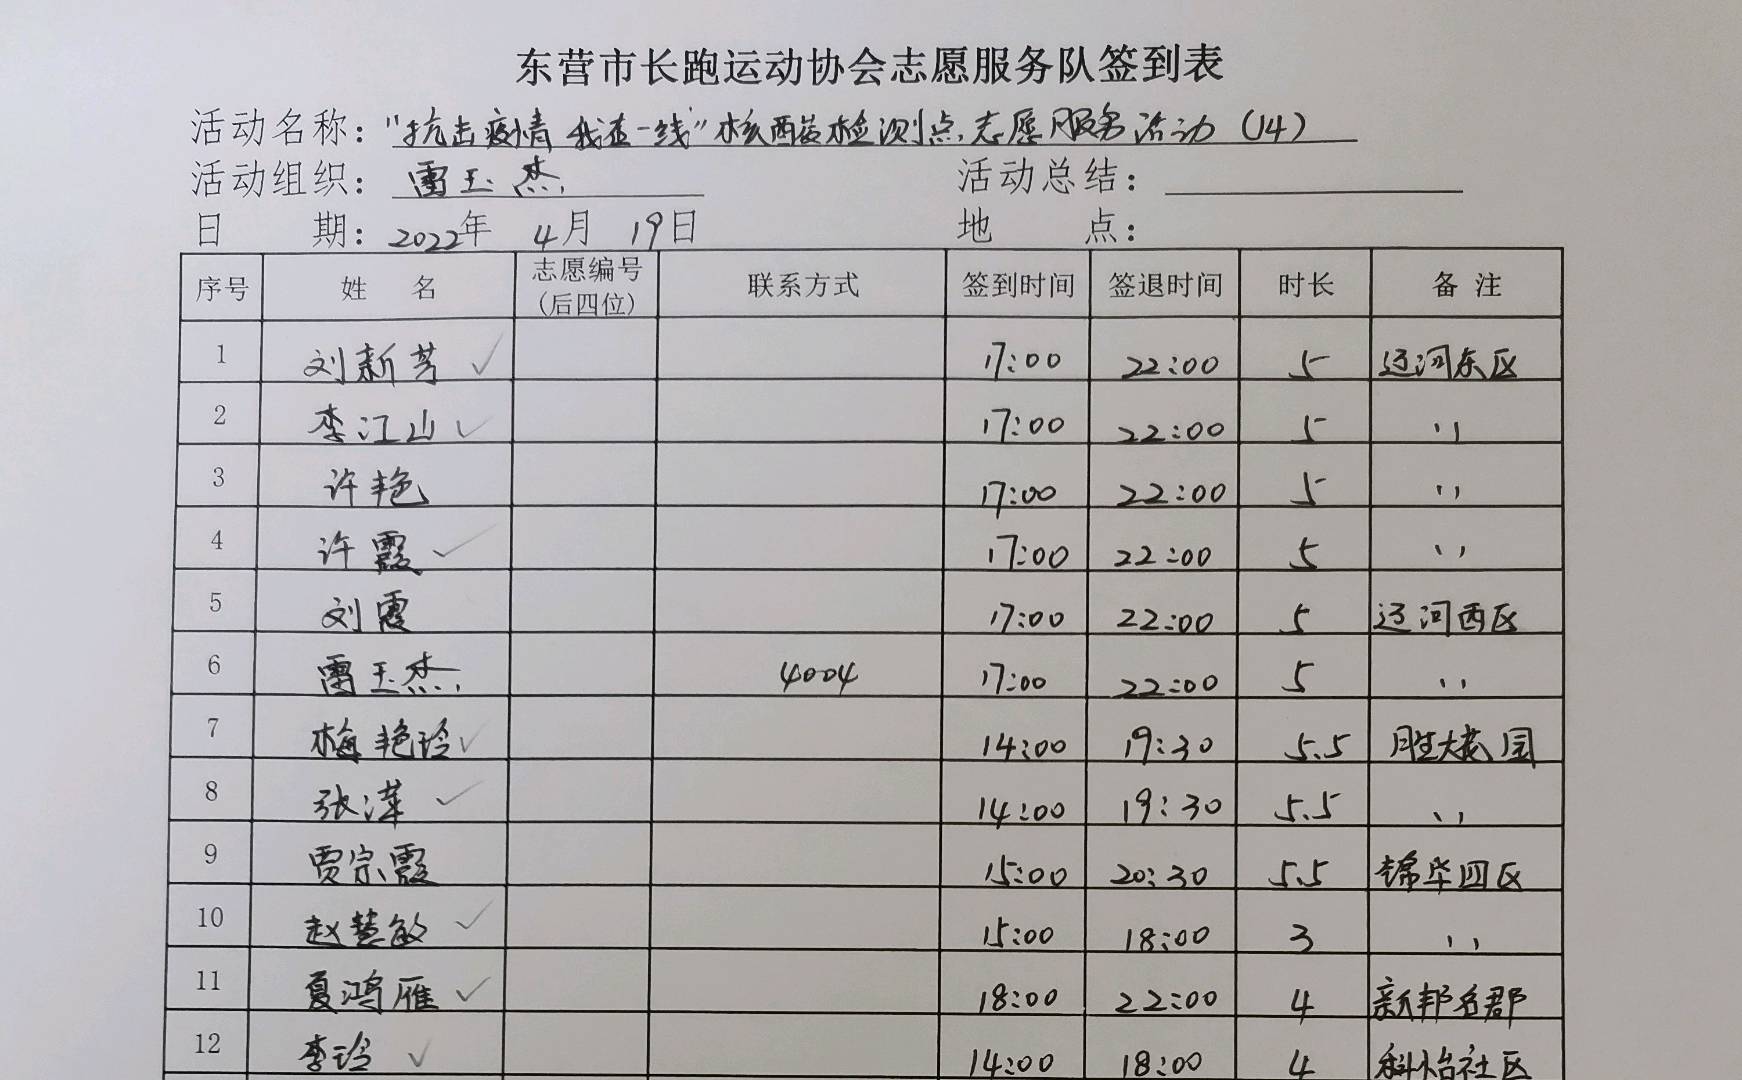 东营市长跑运动协会志愿服务队签到表
活动名称："抗击疫情 我在一线"核酸检测点志愿服务活动(14)
活动组织：雷玉杰 活动总结：
日 期：2022年 4月 19日 地 点：
序号 姓 名 志愿编号(后四位) 联系方式 签到时间 签退时间 时长 备 注
1 刘新芳 ✓ 17:00 22:00 5 辽河东区
2 李江山 ✓ 17:00 22:00 5 〃
3 许艳 17:00 22:00 5 〃
4 许霞 ✓ 17:00 22:00 5 〃
5 刘霞 17:00 22:00 5 辽河西区
6 雷玉杰 4004 17:00 22:00 5 〃
7 梅艳玲 ✓ 14:00 19:30 5.5 胜大花园
8 张萍 ✓ 14:00 19:30 5.5 〃
9 贾宗霞 15:00 20:30 5.5 锦华四区
10 赵慧敏 ✓ 15:00 18:00 3 〃
11 夏鸿雁 ✓ 18:00 22:00 4 新邦名郡
12 李玲 ✓ 14:00 18:00 4 科怡社区